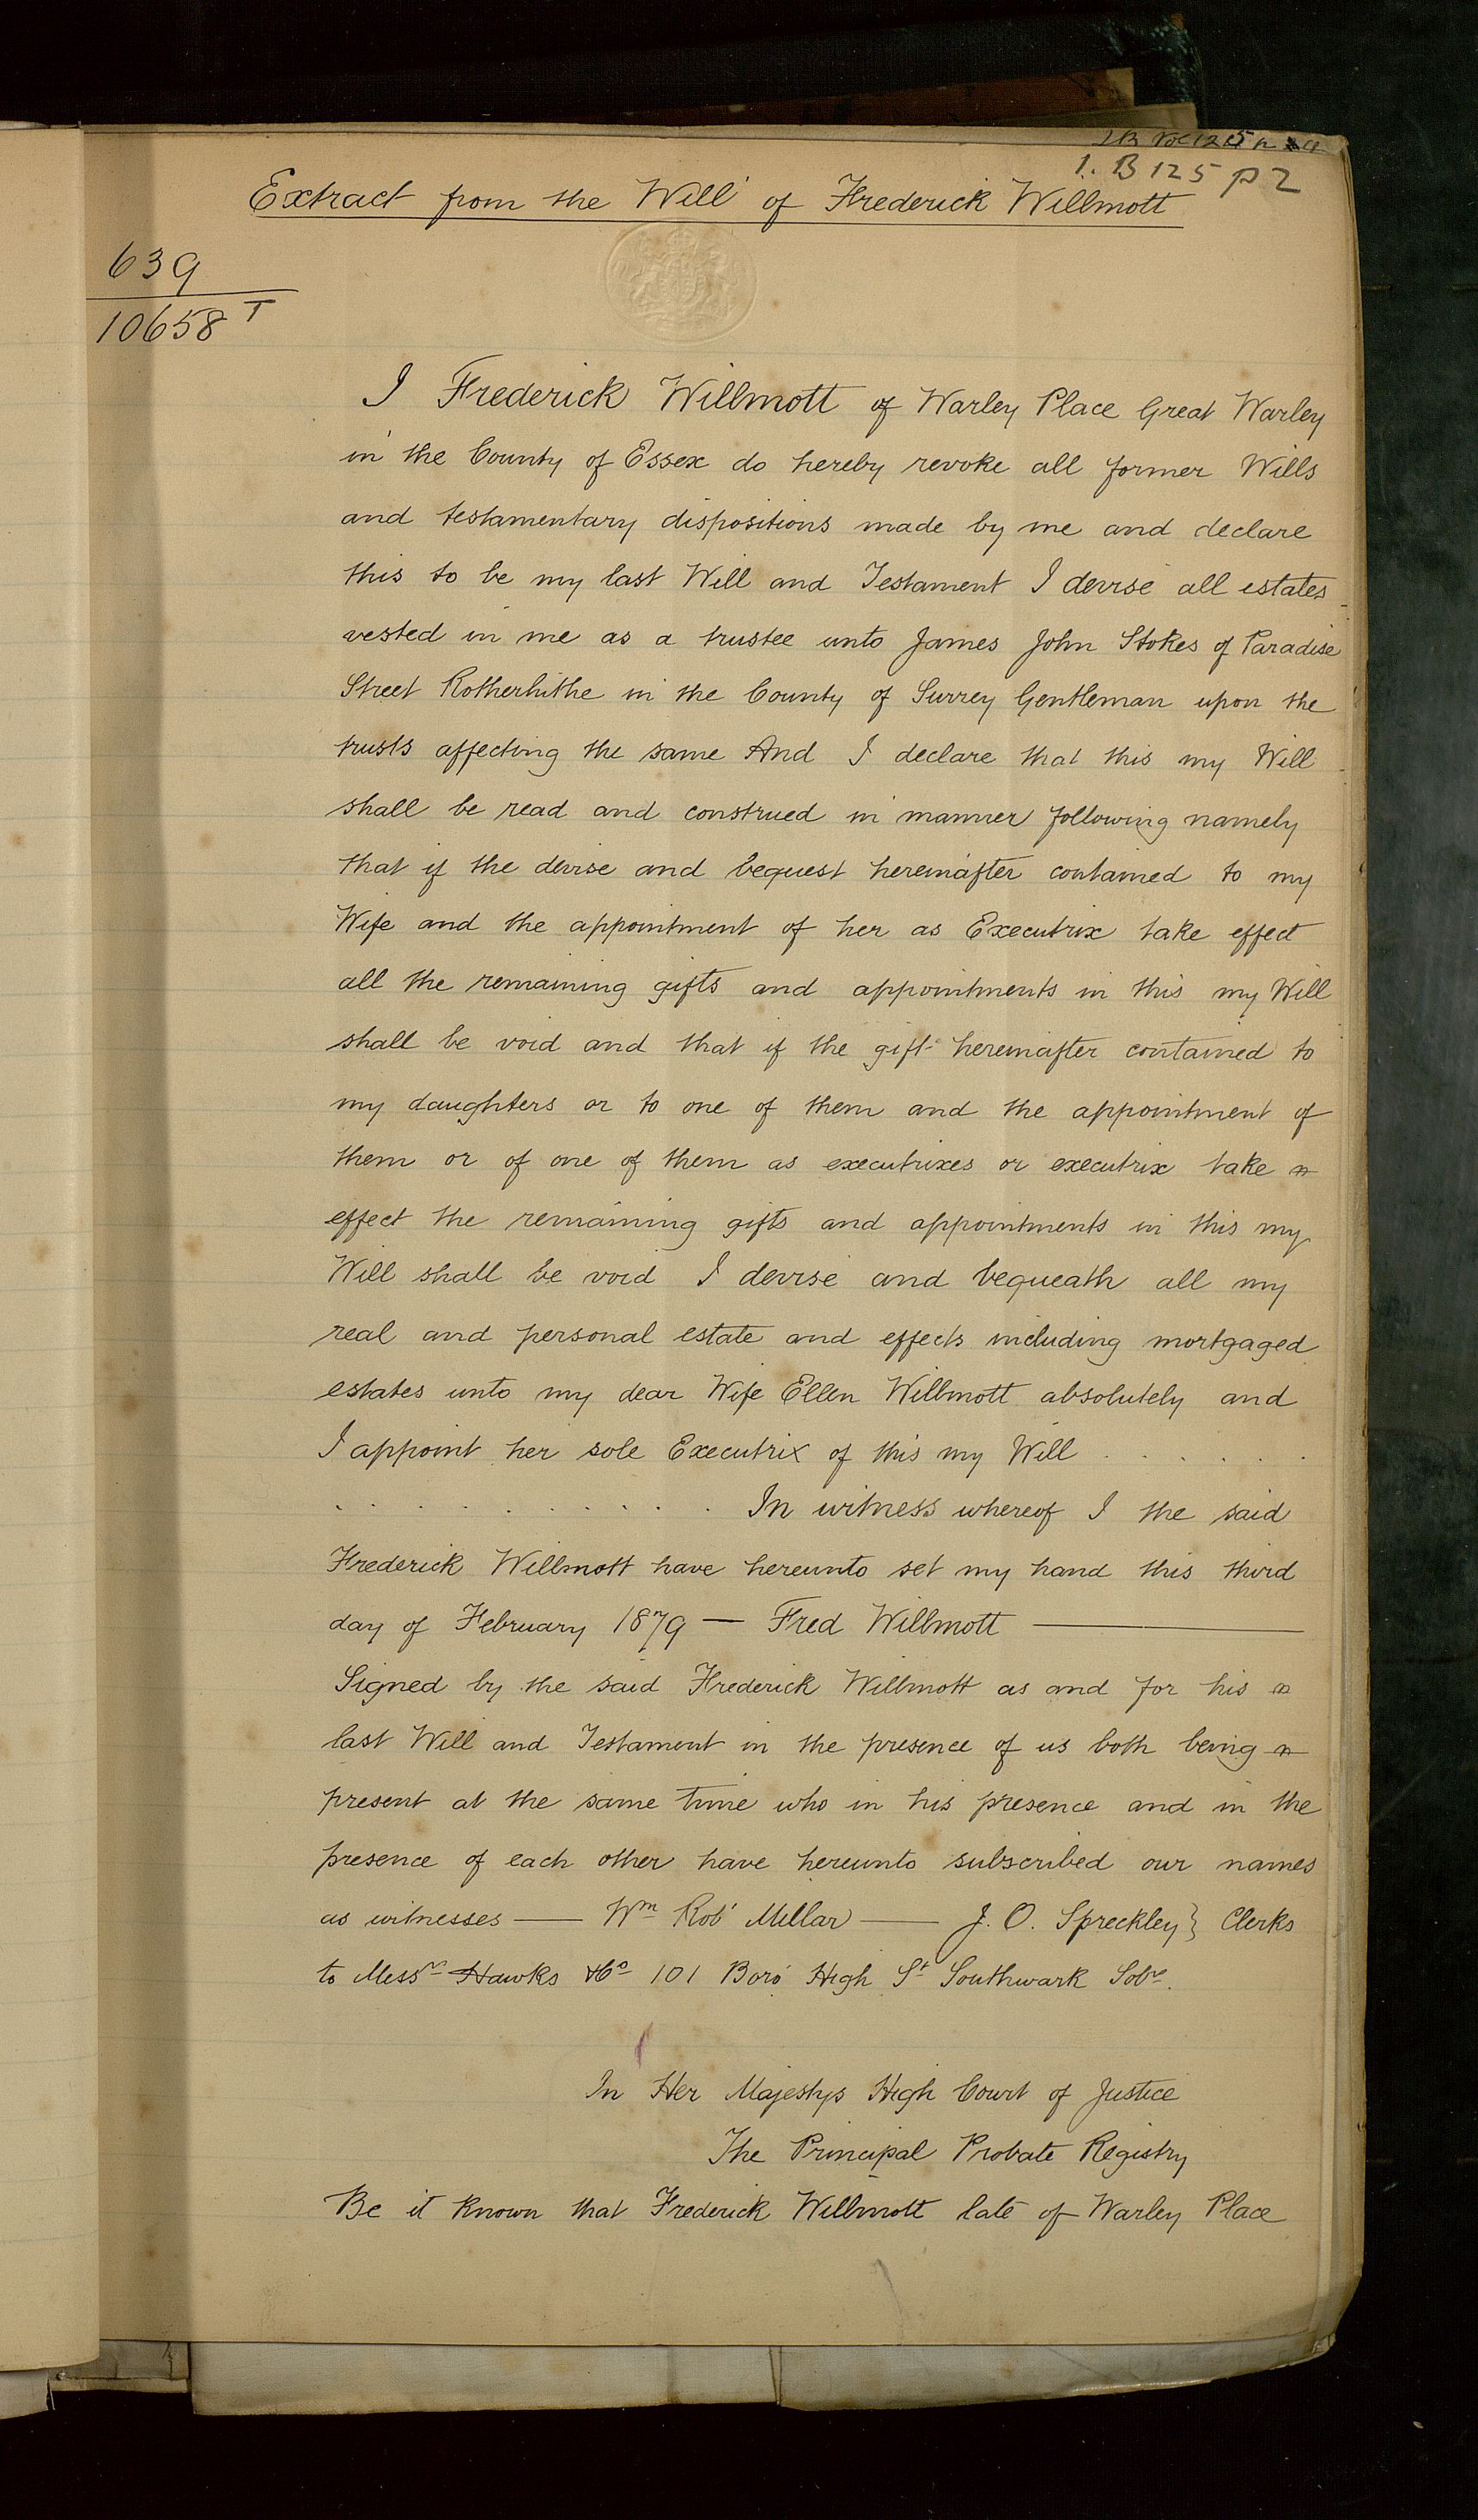 1. B 125 p 2
Extract from the Will of Frederick Willmott
639
10658 T
I Frederick Willmott of Warley Place Great Warley
in the County of Essex do hereby revoke all former Wills
and testamentary dispositions made by me and declare
this to be my last Will and Testament I devise all estates
vested in me as a trustee unto James John Stokes of Paradise
Street Rotherhithe in the County of Surrey Gentleman upon the
trusts affecting the same And I declare that this my Will
shall be read and construed in manner following namely
that if the devise and bequest hereinafter contained to my
Wife and the appointment of her as Executrix take effect
all the remaining gifts and appointments in this my Will
shall be void and that if the gift hereinafter contained to
my daughters or to one of them and the appointment of
them or of one of them as executrixes or executrix take
effect the remaining gifts and appointments in this my
Will shall be void I devise and bequeath all my
real and personal estate and effects including mortgaged
estates unto my dear Wife Ellen Willmott absolutely and
I appoint her sole Executrix of this my Will . . . . . .
. . . . . . . . . . In witness whereof I the said
Frederick Willmott have hereunto set my hand this third
day of February 1879 — Fred Willmott —
Signed by the said Frederick Willmott as and for his
last Will and Testament in the presence of us both being
present at the same time who in his presence and in the
presence of each other have hereunto subscribed our names
as witnesses — Wm Robt Millar — J. O. Spreckley } Clerks
to Messrs Hawks & Co 101 Boro' High St Southwark Solrs.
In Her Majestys High Court of Justice
The Principal Probate Registry
Be it known that Frederick Willmott late of Warley Place